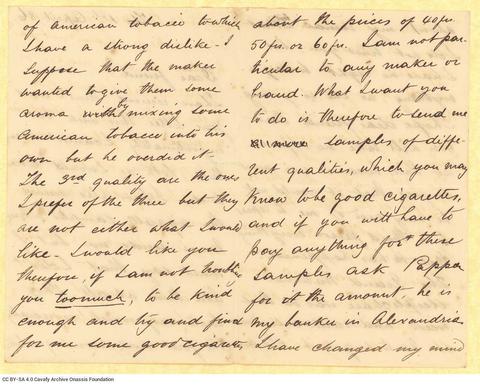 of American tobacco to which
I have a strong dislike - I
suppose that the maker
wanted to give them some
aroma with by mixing some
American tobacco into his
own but he overdid it -
The 3rd quality are the ones
I prefer of the three but they
are not either what I would
like - I would like you
therefore, if I am not troubling
you too much, to be kind
enough and try and find
for me some good cigarettes,
about the prices of 40 frs.
50 frs. or 60 frs. I am not par-
ticular to any maker or
brand. What I want you
to do is therefore to send me
samples of diffe-
rent qualities, which you may
know to be good cigarettes,
and if you will have to
pay anything for these
samples ask Pappa
for it the amount, he is
my banker in Alexandria
I have changed my mind
CC BY-SA 4.0 Cavafy Archive Onassis Foundation